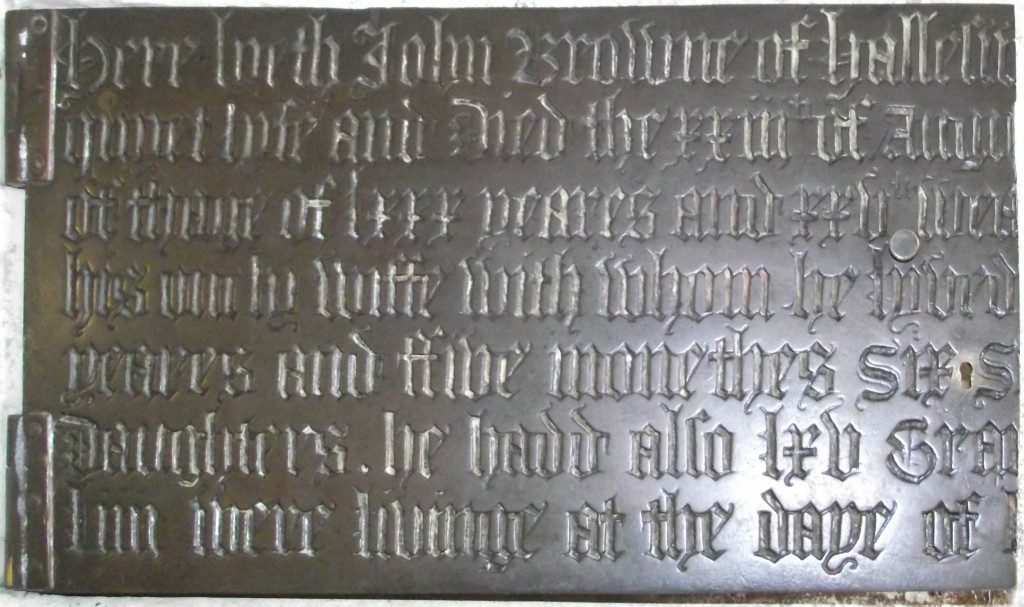 Here lyeth John Browne of hallesw
quiet lyfe and Died the xxiiiith of Augu
of thage of lxxx yeares and xxvth wee
his only wiffe with whom he lyved
yeares and ffive monethes Six S
Daughters. he hadd also lxv Gran
him were livinge at the daye of h